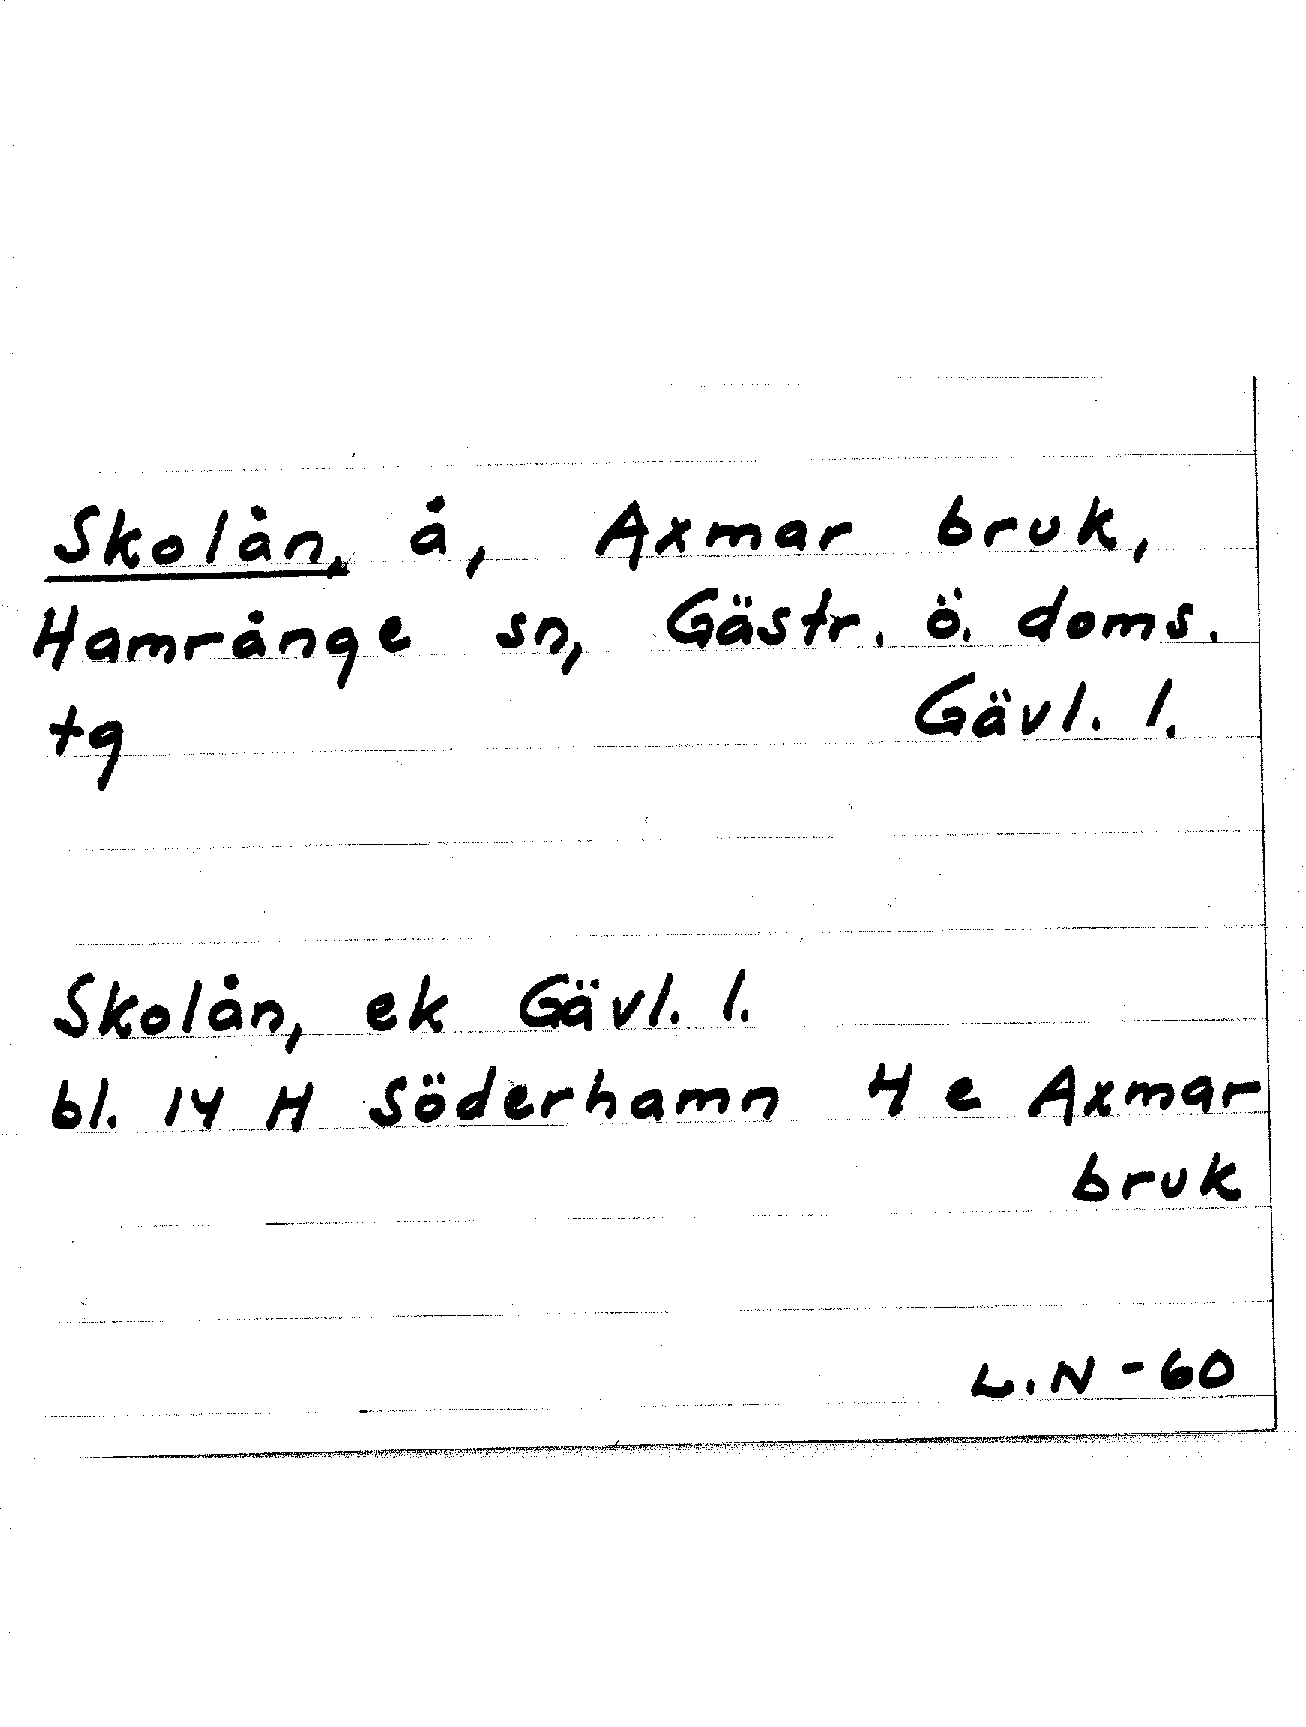 Skolån, å, Axmar bruk,
Hamrånge sn, Gästr. ö. doms.
tg Gävl. l.
Skolån, ek Gävl. l.
bl. 14 H Söderhamn 4 e Axmar
bruk
L.N - 60